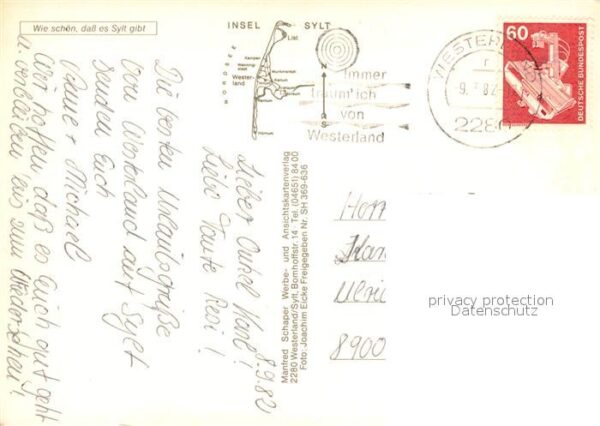 Wie schön, daß es Sylt gibt
INSEL SYLT
NORDSEE
List
Kampen
Westerland
Immer
träumt ich
von
Westerland
WESTERL
9. 82
2280
60
DEUTSCHE BUNDESPOST
8.9.82
Lieber Onkel Hans!
Liebe Tante Resi!
Die besten Urlaubsgrüße
vom Westerland auf Sylt
senden Euch
& Michael
Wir hoffen daß es Euch gut geht
u. verbleiben bis zum Wiedersehen!
Manfred Schaper Werbe- und Ansichtskartenverlag
2280 Westerland/Sylt, Bomhoffstr. 14 · Tel. (04651) 8400
Foto: Joachim Eicke Freigegeben Nr. SH 369-636
8900
privacy protection
Datenschutz